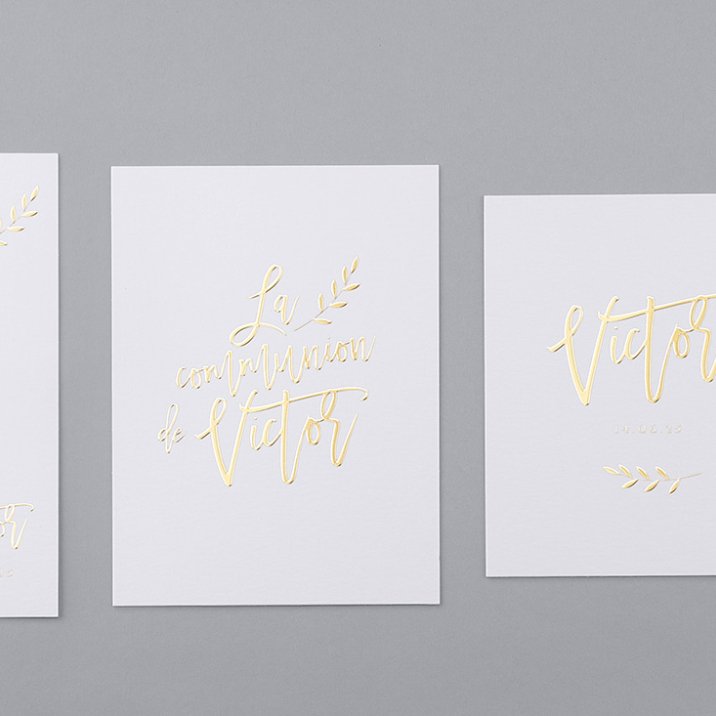 La
communion
de Victor
Victor